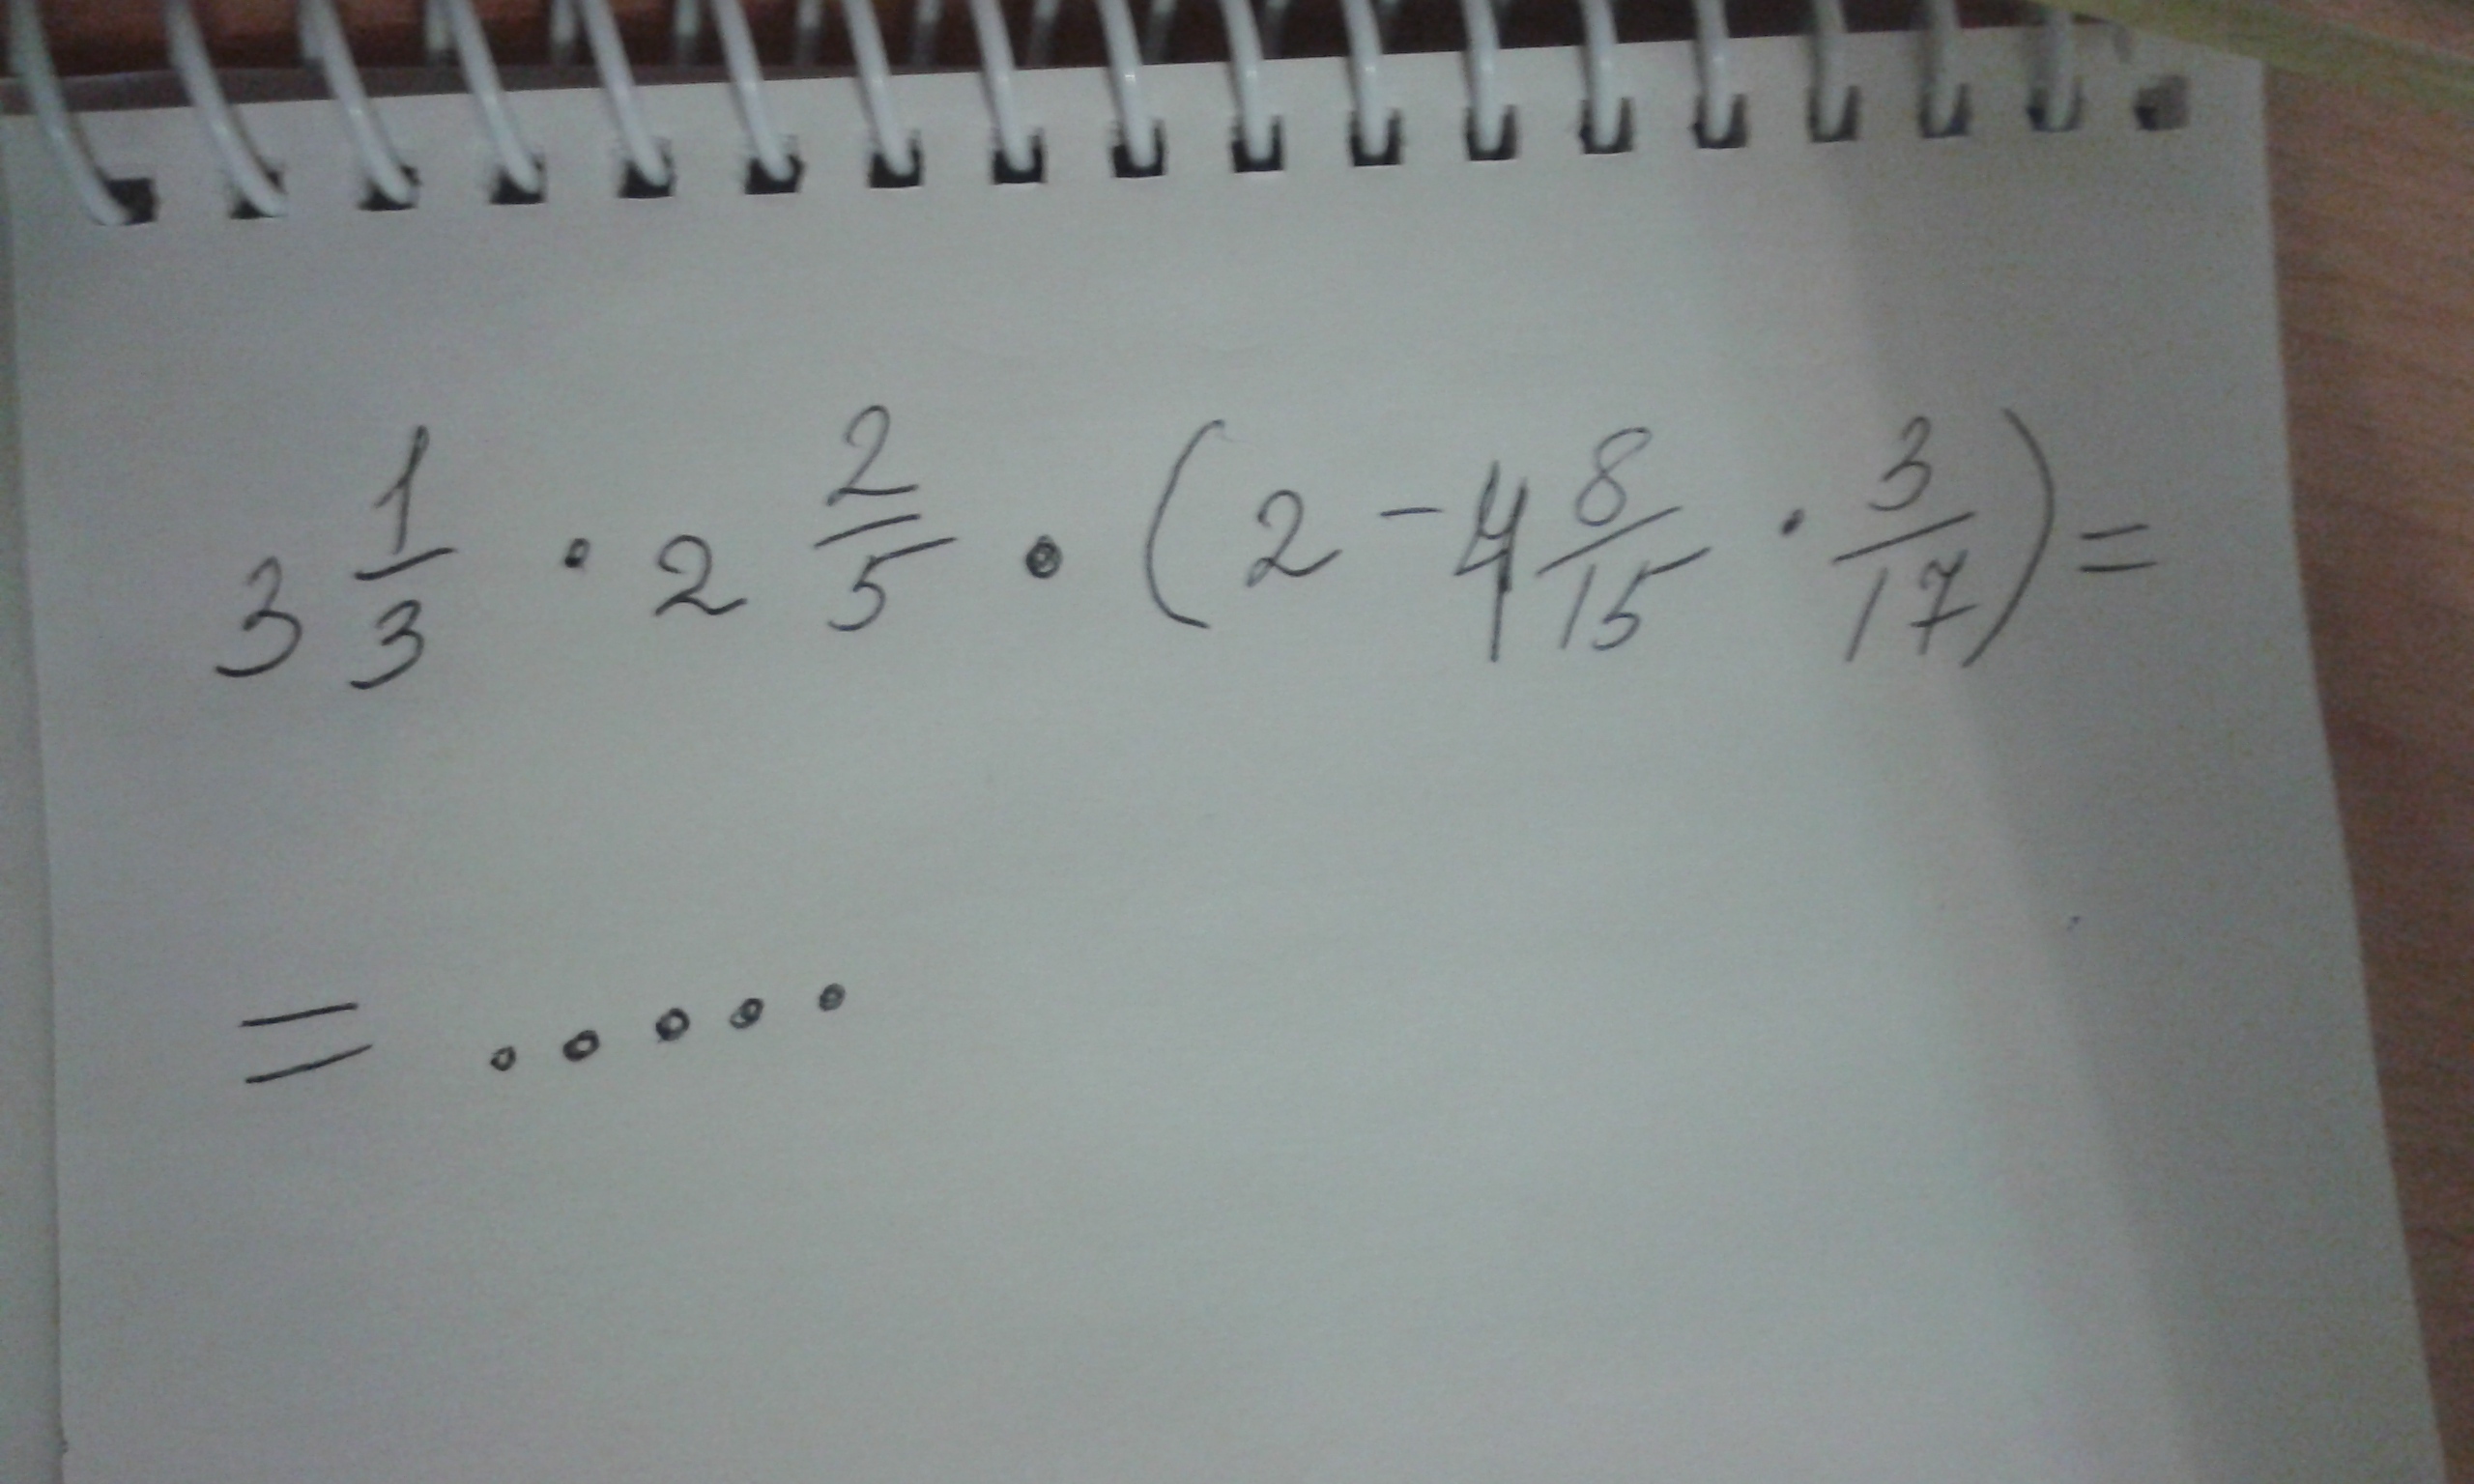 3 1/3 · 2 2/5 · (2 - 4 8/15 · 3/17) =
= .....